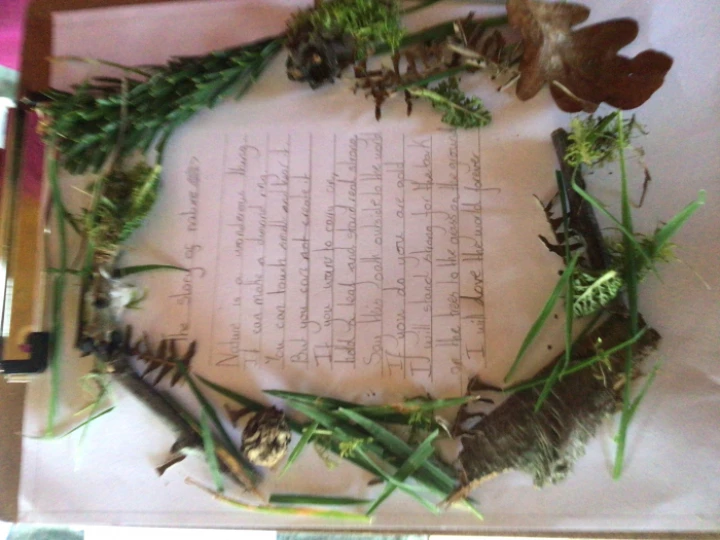 The story of nature
Nature is a wonderous thing
It can make a diamond ring
You can touch and hear it
But you can not create it
If you want to cry, cry
hold a leaf and stand real strong
Say this look outside to the world
If you do you are gold
I will stand strong for the bark
on the trees to the grass on the ground
I will love the world forever